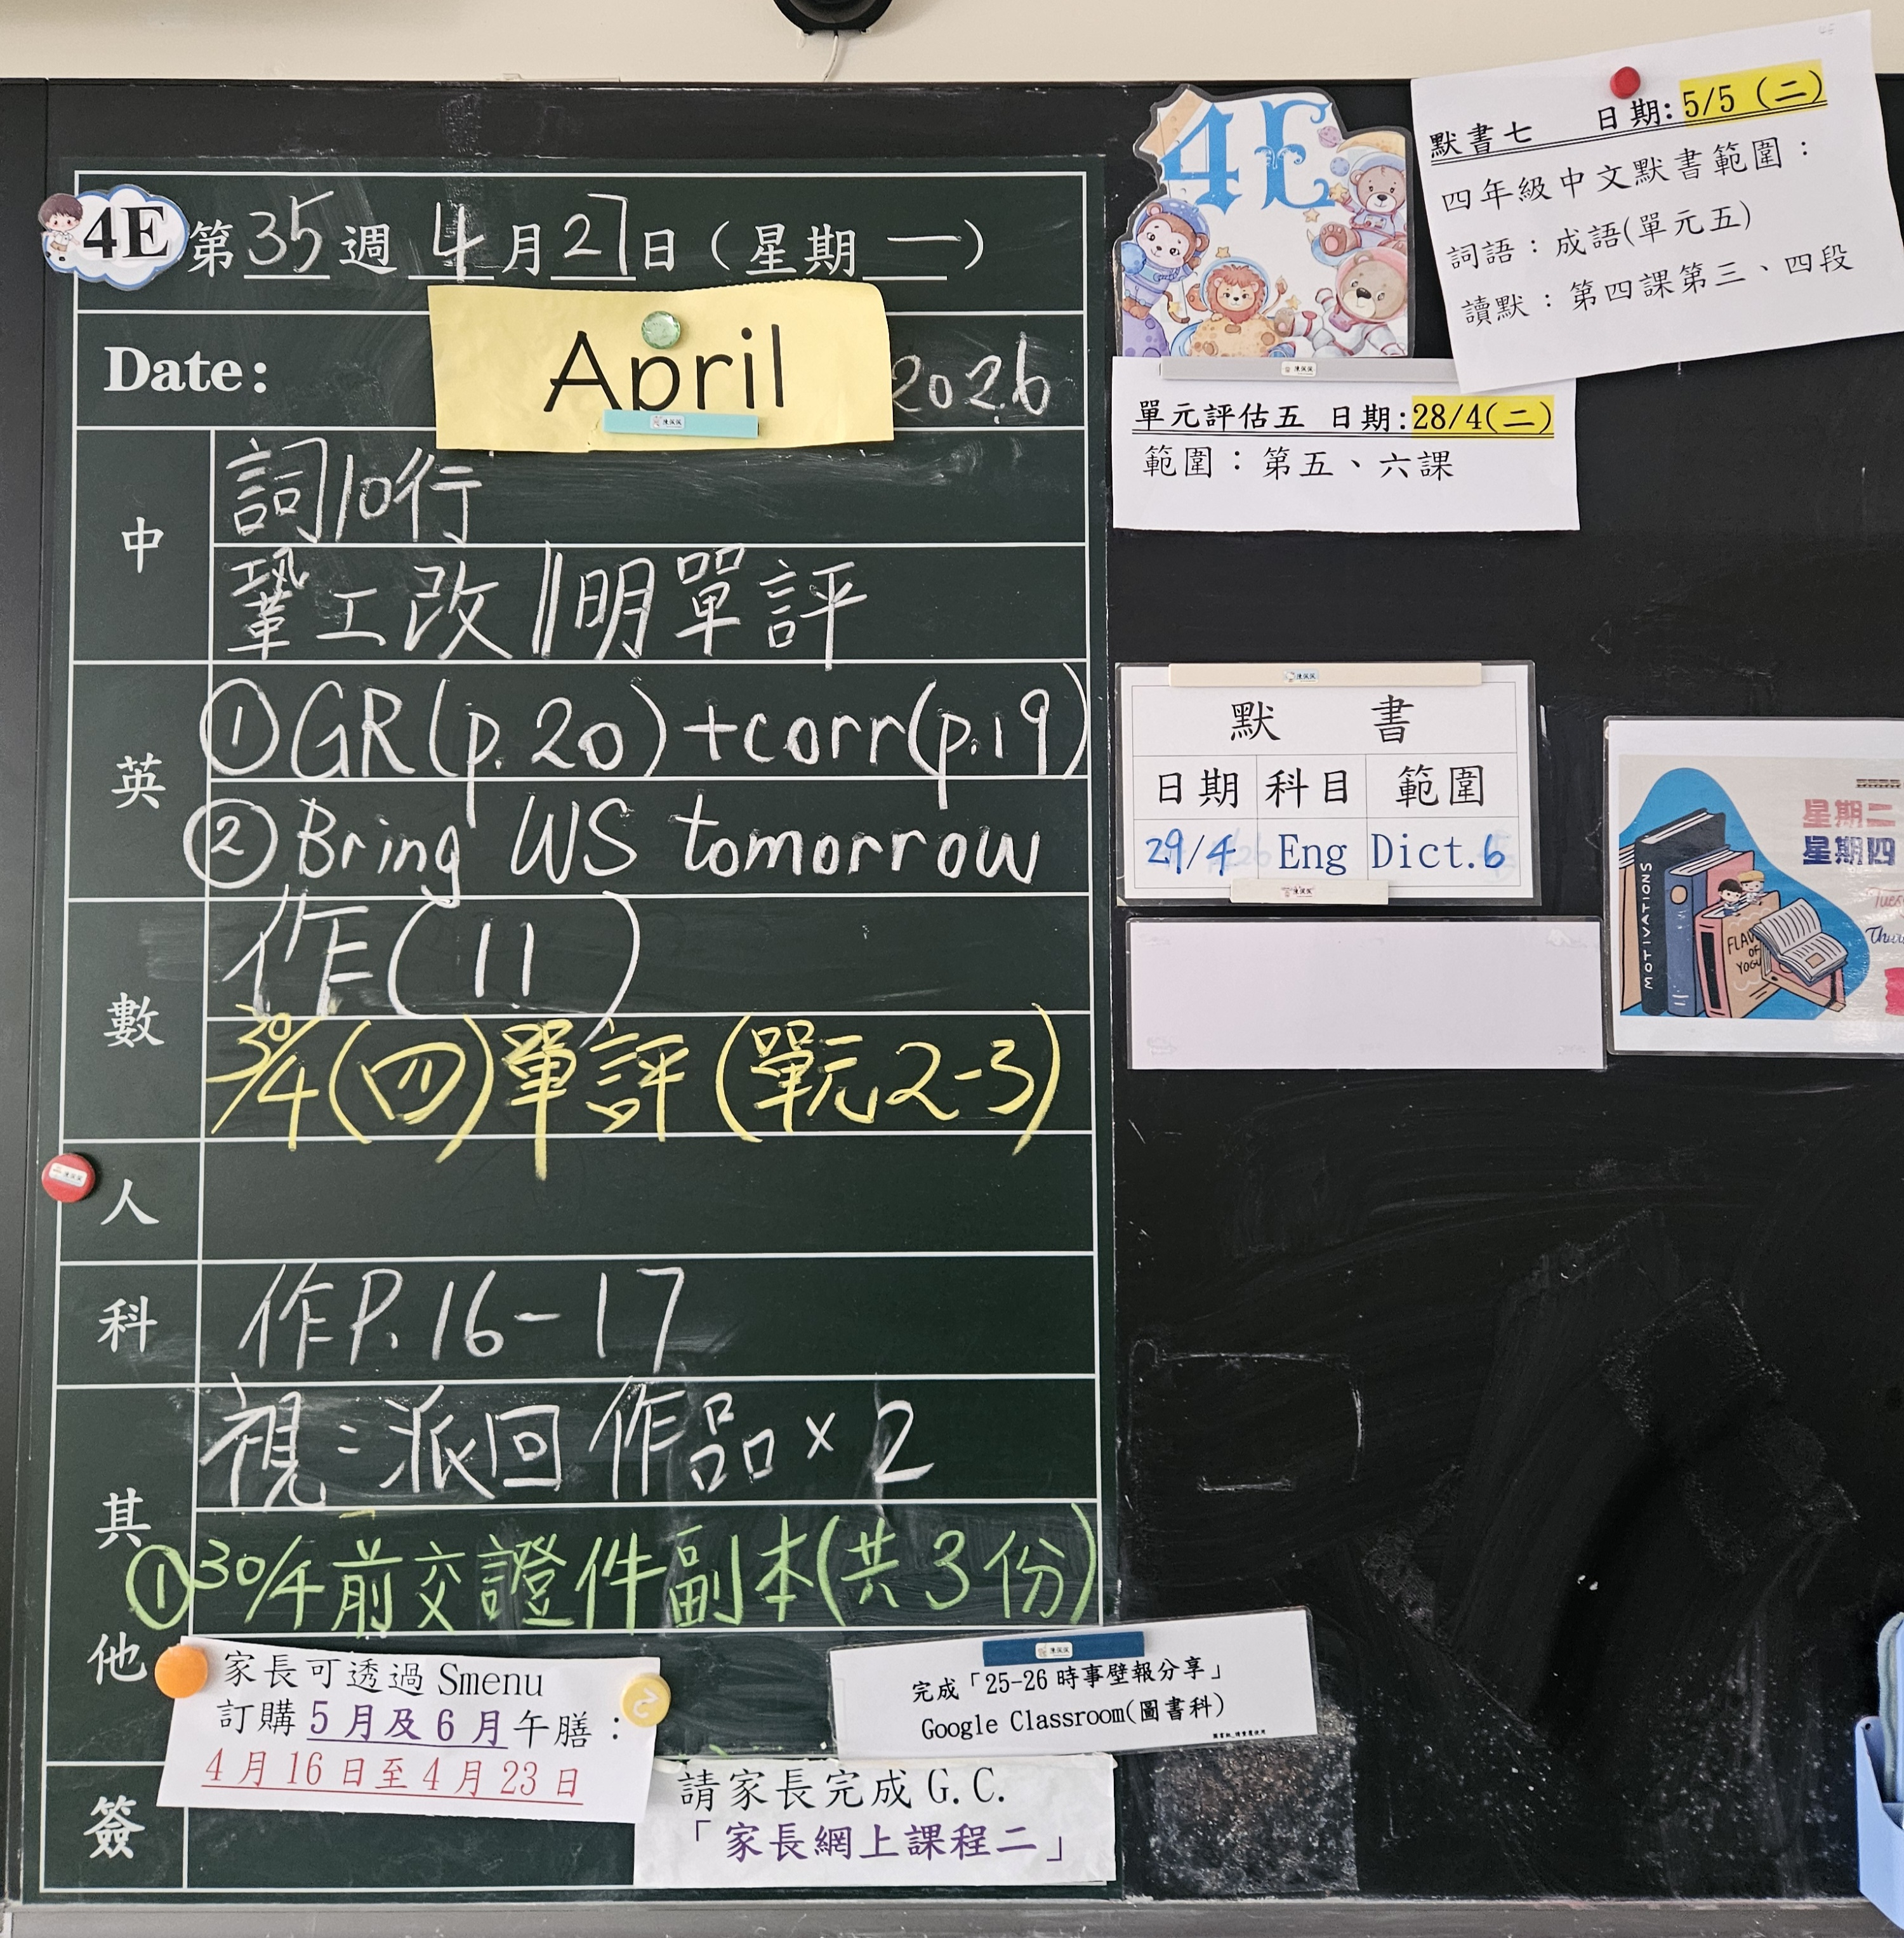 4E 第 35 週 4 月 27 日（星期 一 ）
Date: April 2026
中
詞10行
鞏工改 ∥明單評
英
①GR(p.20)+corr(p.19)
②Bring WS tomorrow
數
作(11)
30/4(四)單評(單元2-3)
人
科
作P.16-17
其他
視：派回作品×2
①30/4前交證件副本(共3份)
家長可透過 Smenu
訂購 5 月及 6 月午膳：
4 月 16 日至 4 月 23 日
完成「25-26 時事壁報分享」
Google Classroom(圖書科)
簽
請家長完成 G.C.
「家長網上課程二」
4E
默書七 日期: 5/5（二）
四年級中文默書範圍：
詞語：成語(單元五)
讀默：第四課第三、四段
單元評估五 日期:28/4(二)
範圍：第五、六課
默 書
日期 科目 範圍
29/4 Eng Dict.6
星期二
星期四
MOTIVATIONS